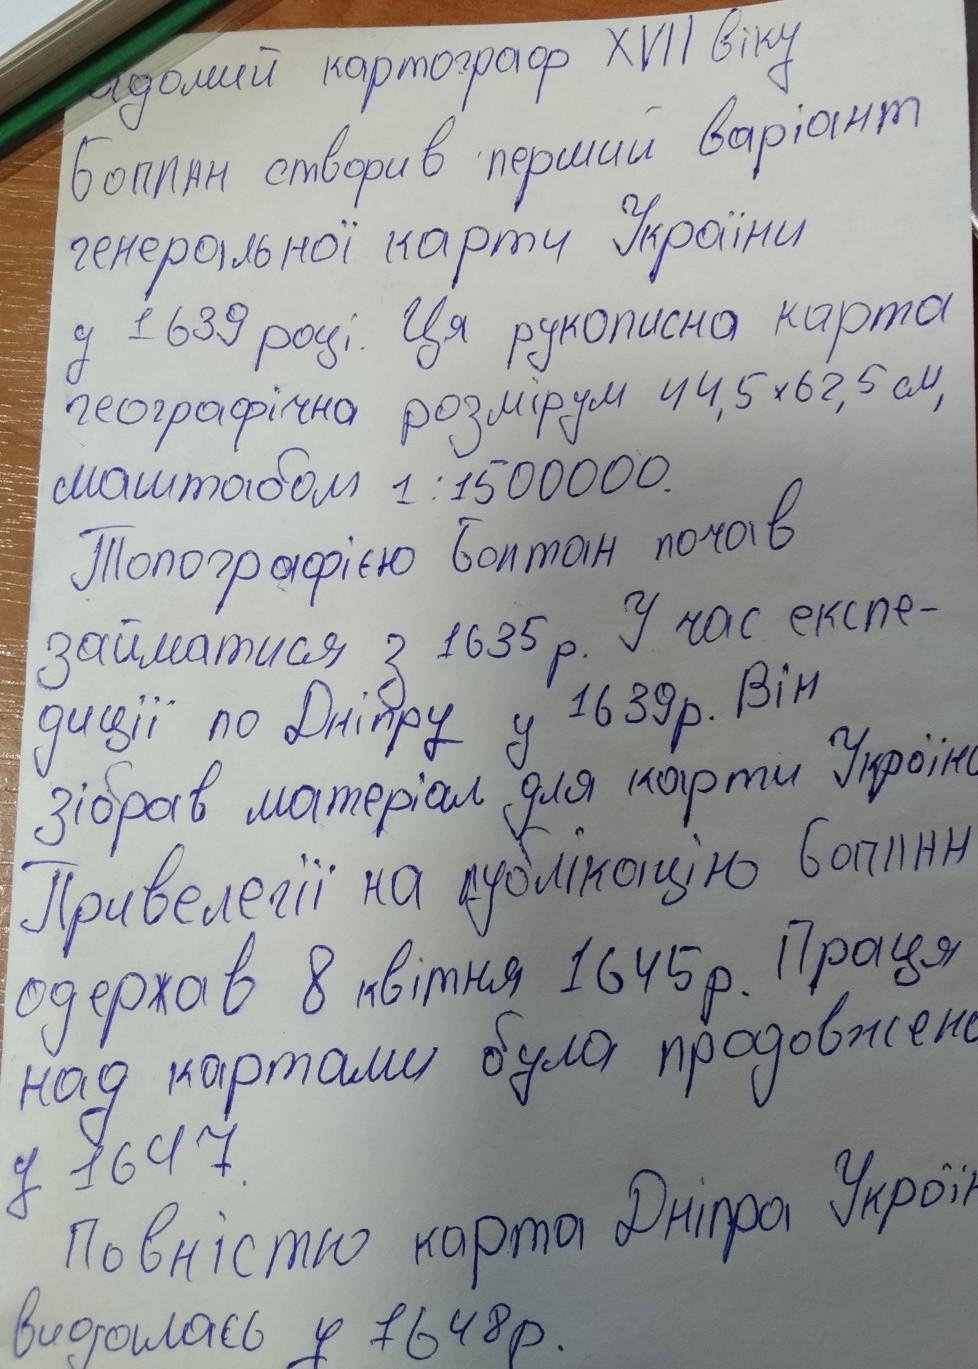 картограф XVII віку
Боплан створив перший варіант
генеральної карти України
у 1639 році. Ця рукописна карта
географічна розмірум 44,5×62,5 см,
маштабом 1:1500000.
Топографією Боплан почав
займатися з 1635 р. У час експе-
диції по Дніпру у 1639р. Він
зібрав матеріал для карти
Привелегії на публікацію Боплан
одержав 8 квітня 1645р. Праця
над картами була
у 1647.
Повністю карта Дніпра
видалась у 1648р.